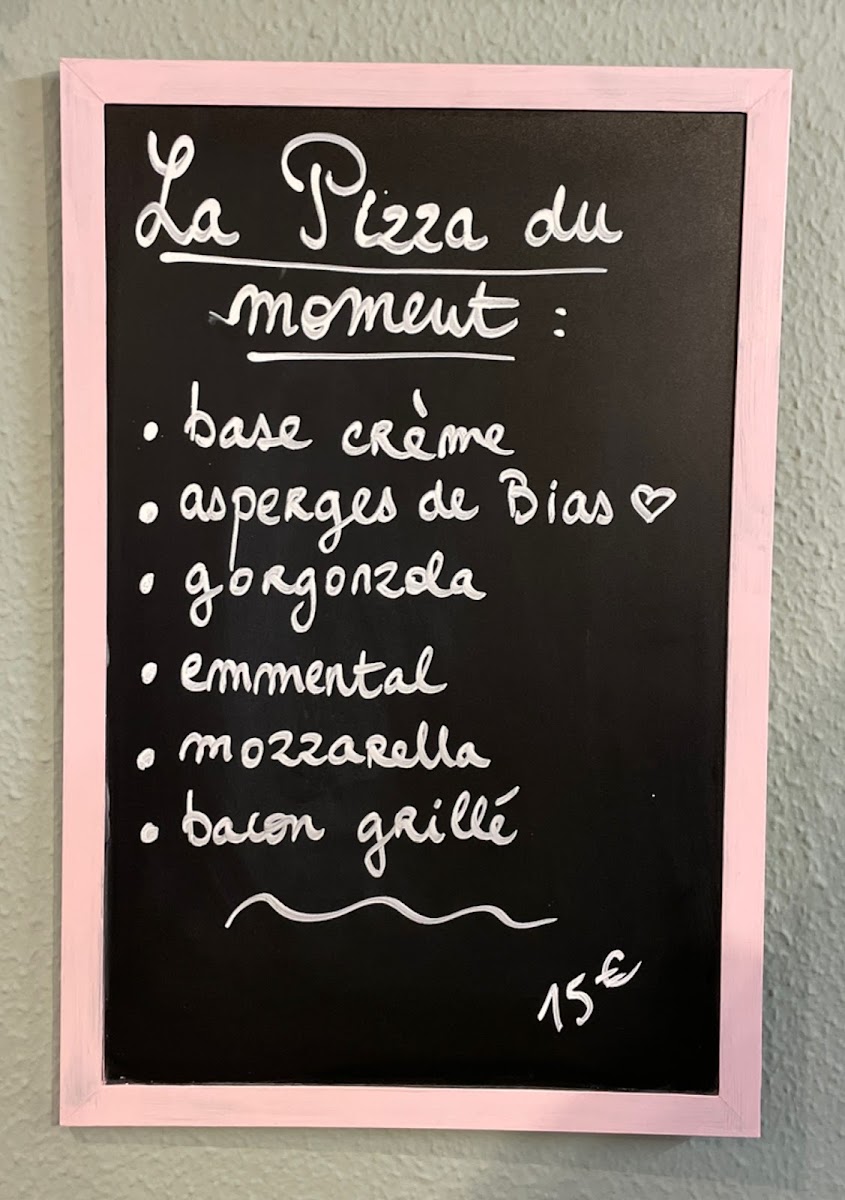 La Pizza du
moment :
• base crème
• asperges de Bias ♡
• gorgonzola
• emmental
• mozzarella
• bacon grillé
15€